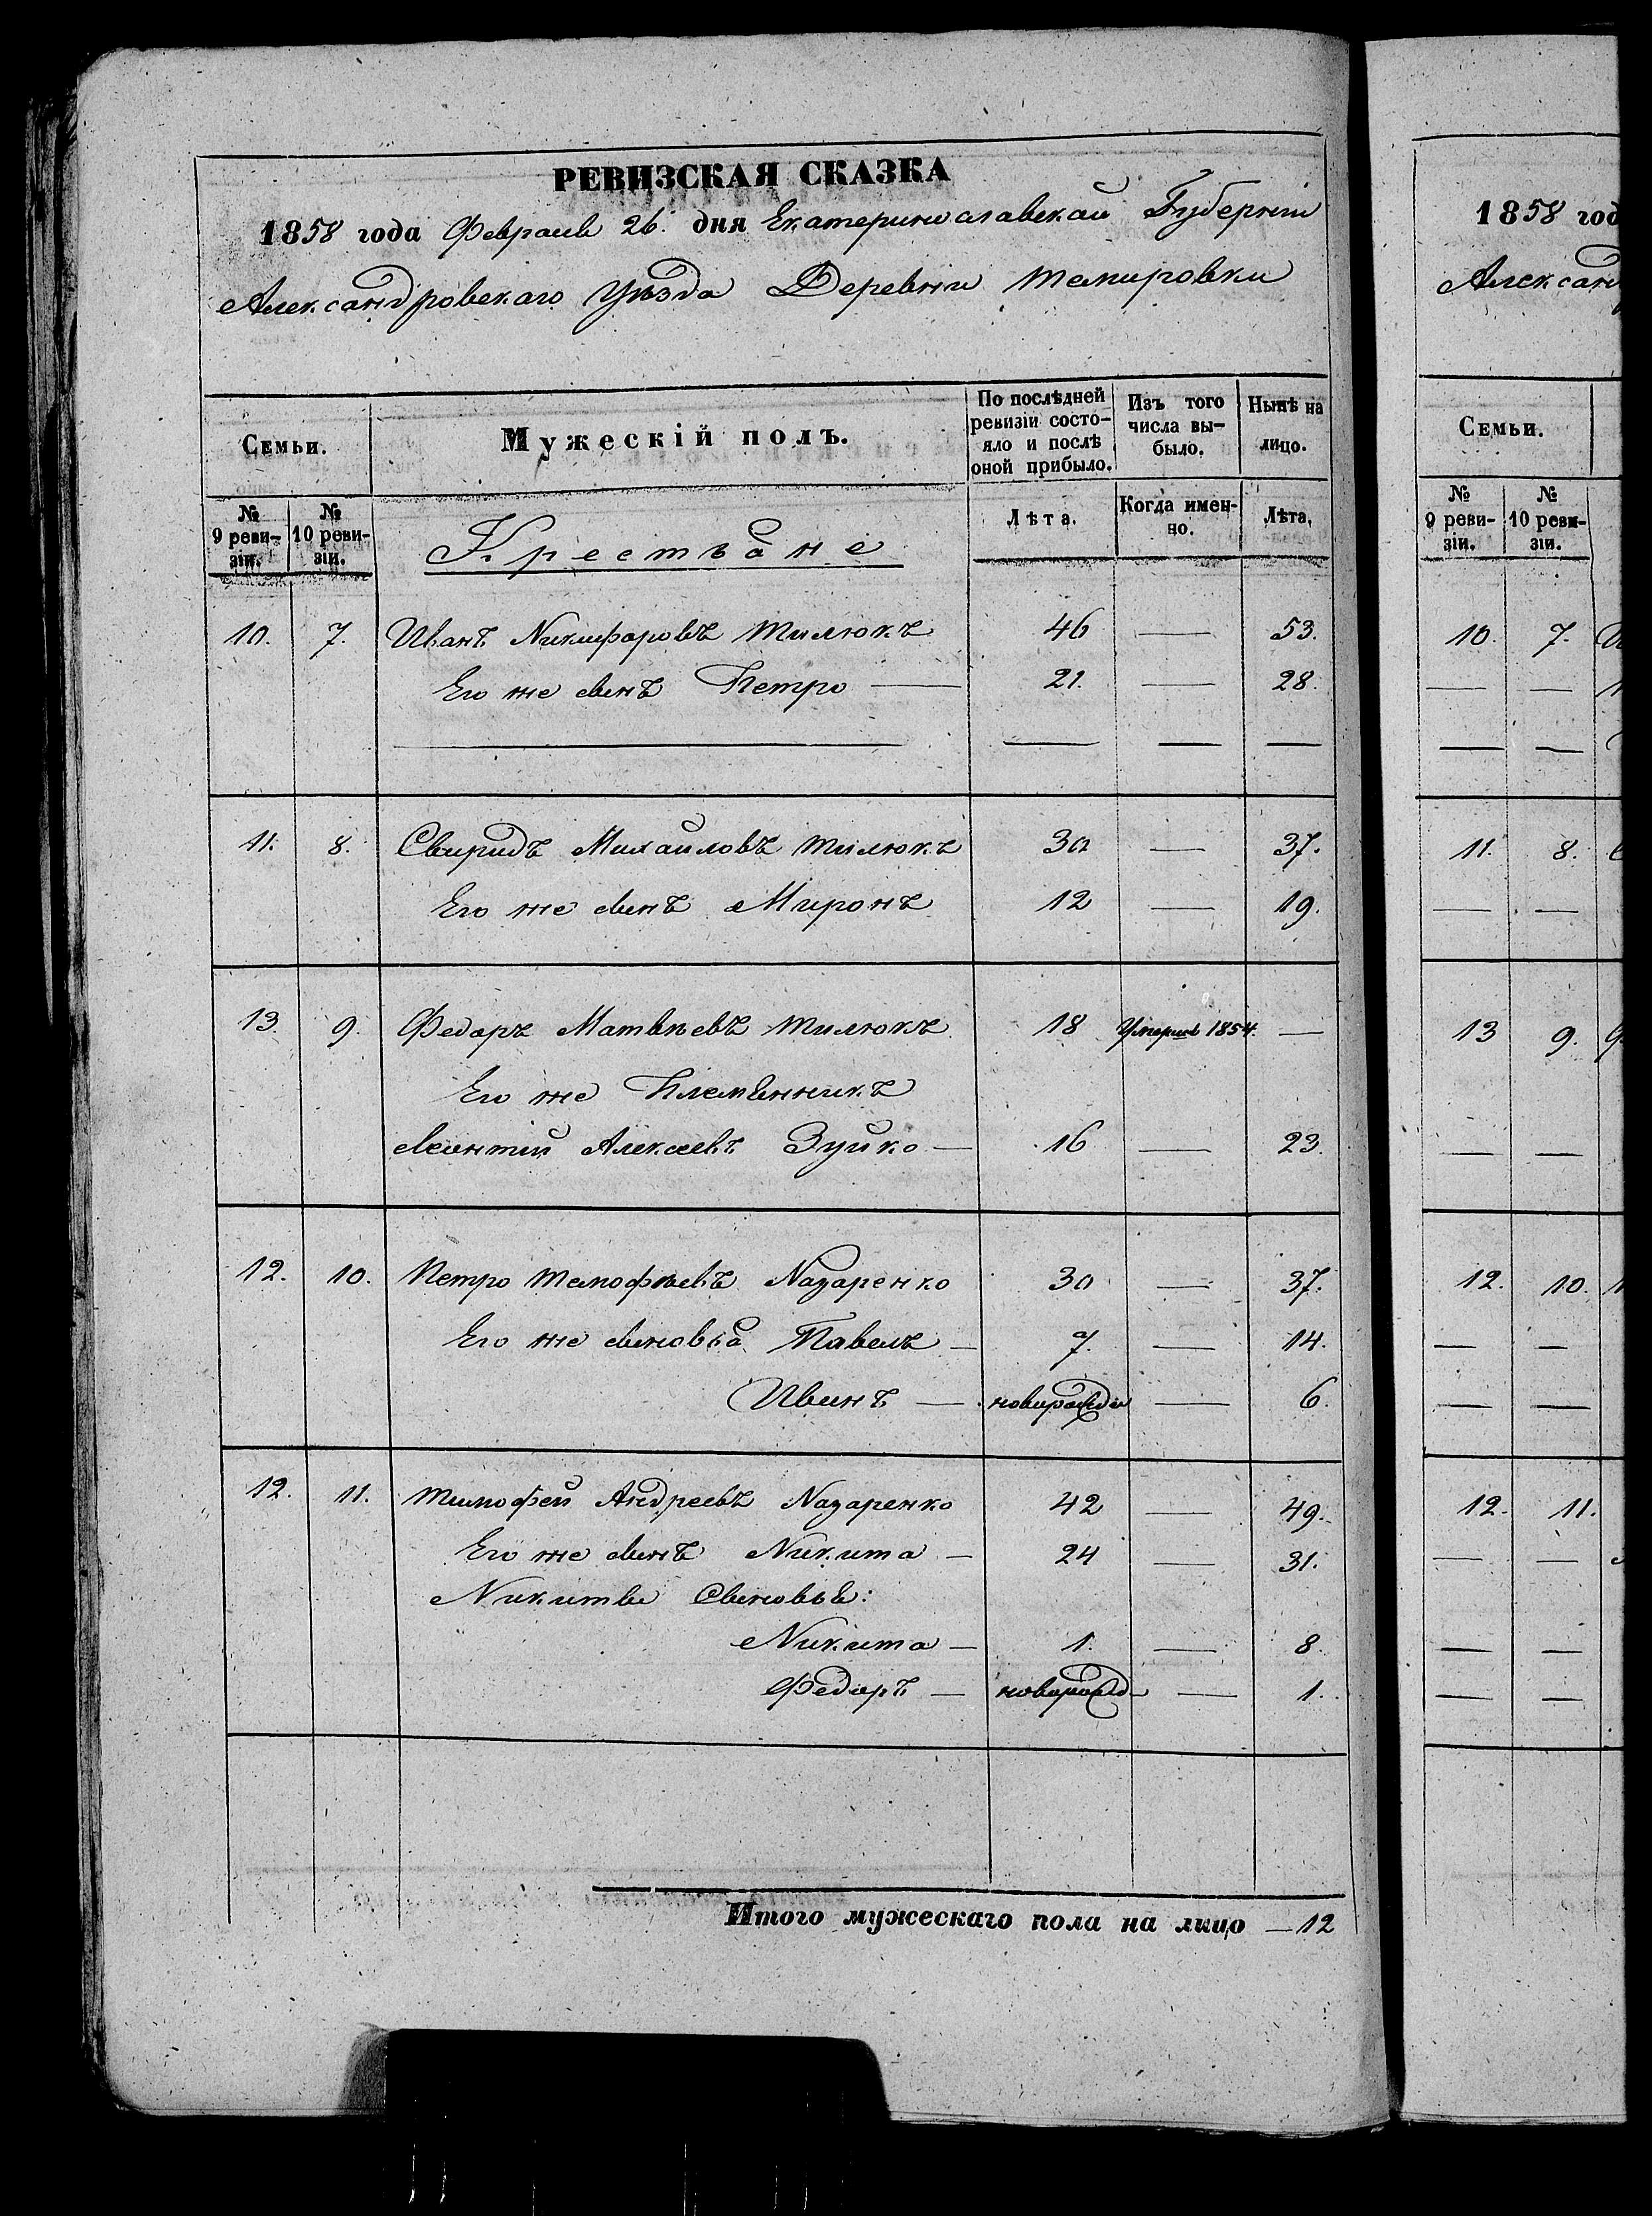 РЕВИЗСКАЯ СКАЗКА
1858 года Февраля 26. дня Екатеринославской Губерніи
Александровскаго Уѣзда Деревни Темировки
Семьи.
Мужескій полъ.
По послѣдней ревизіи состо-яло и послѣ оной прибыло.
Изъ того числа вы-было.
Нынѣ на лицо.
№ 9 реви-зіи.
№ 10 реви-зіи.
Крестьяне
Лѣта.
Когда имен-но.
Лѣта.
10. 7. Иванъ Никифоровъ Тилюкъ 46 — 53.
Его же сынъ Петро — 21. — 28.
11. 8. Свиридъ Михайловъ Тилюкъ 30 — 37.
Его же сынъ Миронъ 12 — 19.
13. 9. Федоръ Матвѣевъ Тилюкъ 18 Умеръ 1854. —
Его же Племянникъ
Леонтій Алексеевъ Зуйко — 16 — 23.
12. 10. Петро Темофѣевъ Назаренко 30 — 37.
Его же сыновья Павелъ — 7. — 14.
Иванъ — новорожден — 6.
12. 11. Тимофей Андреевъ Назаренко 42 — 49.
Его же сынъ Никита — 24 — 31.
Никиты Сыновья:
Никита — 1. — 8.
Федоръ — новорожд — 1.
Итого мужескаго пола на лицо — 12
1858 год
Александ
Семьи.
№ 9 реви-зіи.
№ 10 реви-зіи.
10. 7.
11. 8.
13 9.
12. 10.
12. 11.